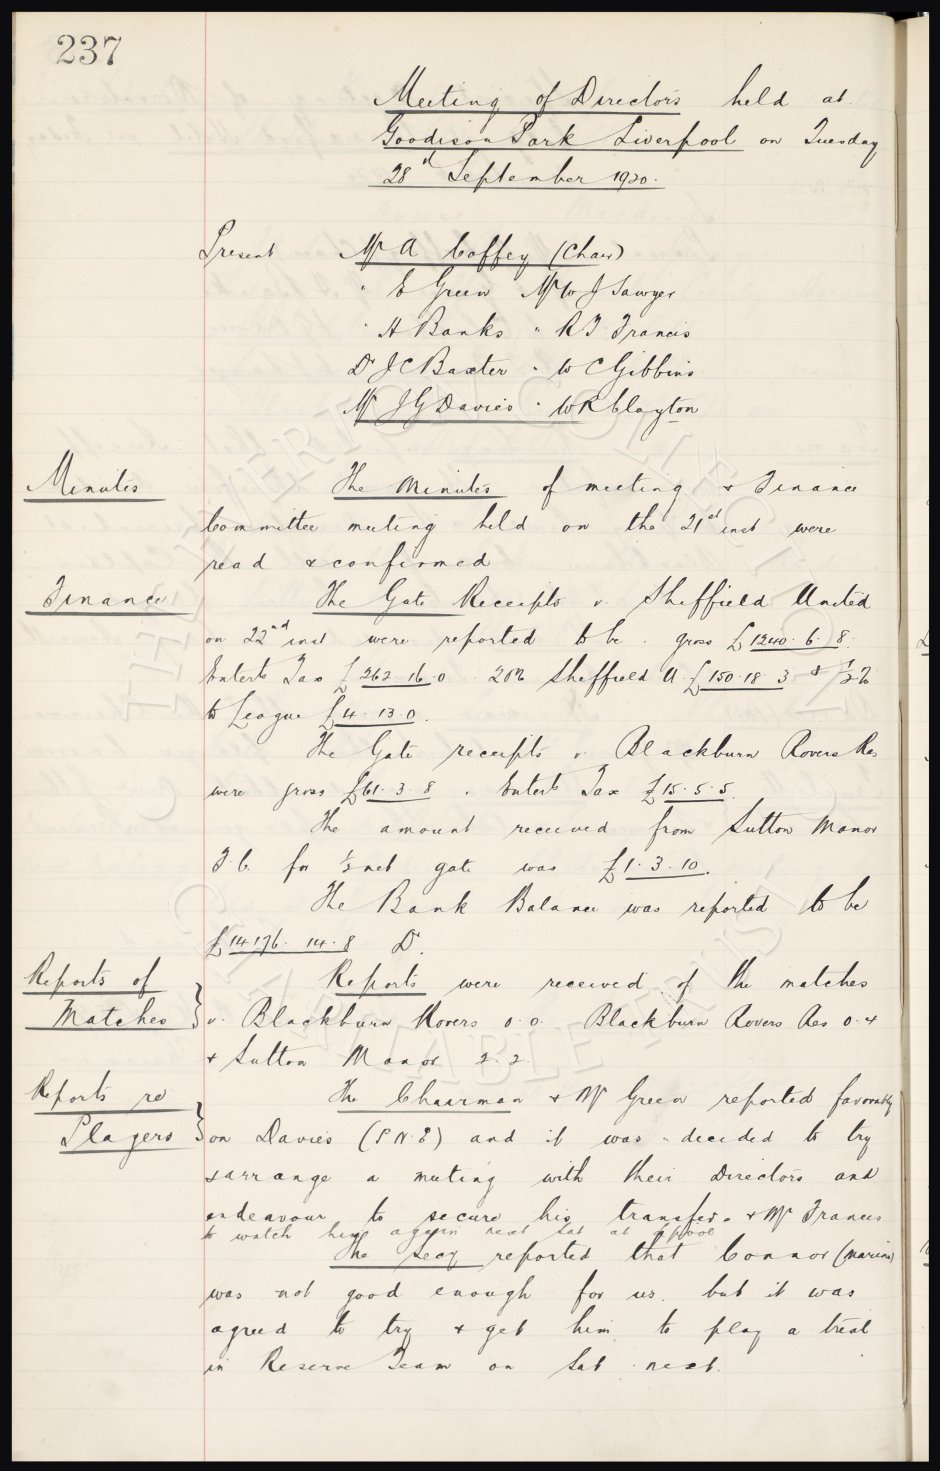 237
Meeting of Directors held at
Goodison Park Liverpool on Tuesday
28th September 1920.
Present Mr A Coffey (Chair)
" E Green Mr W J Sawyer
" H Banks " R T Francis
Dr J C Baxter " W C Gibbins
Mr J G Davies " W R Clayton
Minutes The Minutes of meeting & Finance
Committee meeting held on the 21st inst were
read & confirmed
Finance The Gate Receipts v. Sheffield United
on 22nd inst were reported to be gross £1240. 6. 8.
Enterts Tax £262. 16. 0 20% Sheffield U. £150. 18. 3 & ½%
to League £4. 13. 0.
The Gate receipts v. Blackburn Rovers Res
were gross £61. 3. 8. Enterts Tax £15. 5. 5.
The amount received from Sutton Manor
F.C. for ½ net gate was £1. 3. 10.
The Bank Balance was reported to be
£14176. 14. 8 Dr.
Reports of Reports were received of the matches
Matches } v. Blackburn Rovers 0.0. Blackburn Rovers Res 0.4
& Sutton Manor 2.2.
Reports re The Chairman & Mr Green reported favorably
Players } on Davies (P.N.E) and it was decided to try
& arrange a meeting with their Directors and
endeavour to secure his transfer. & Mr Francis
to watch him again next Sat at
The Secy reported that Connor (Marine)
was not good enough for us. but it was
agreed to try & get him to play a trial
in Reserve Team on Sat next.
EVERTON COLLECTION
CHARITABLE TRUST